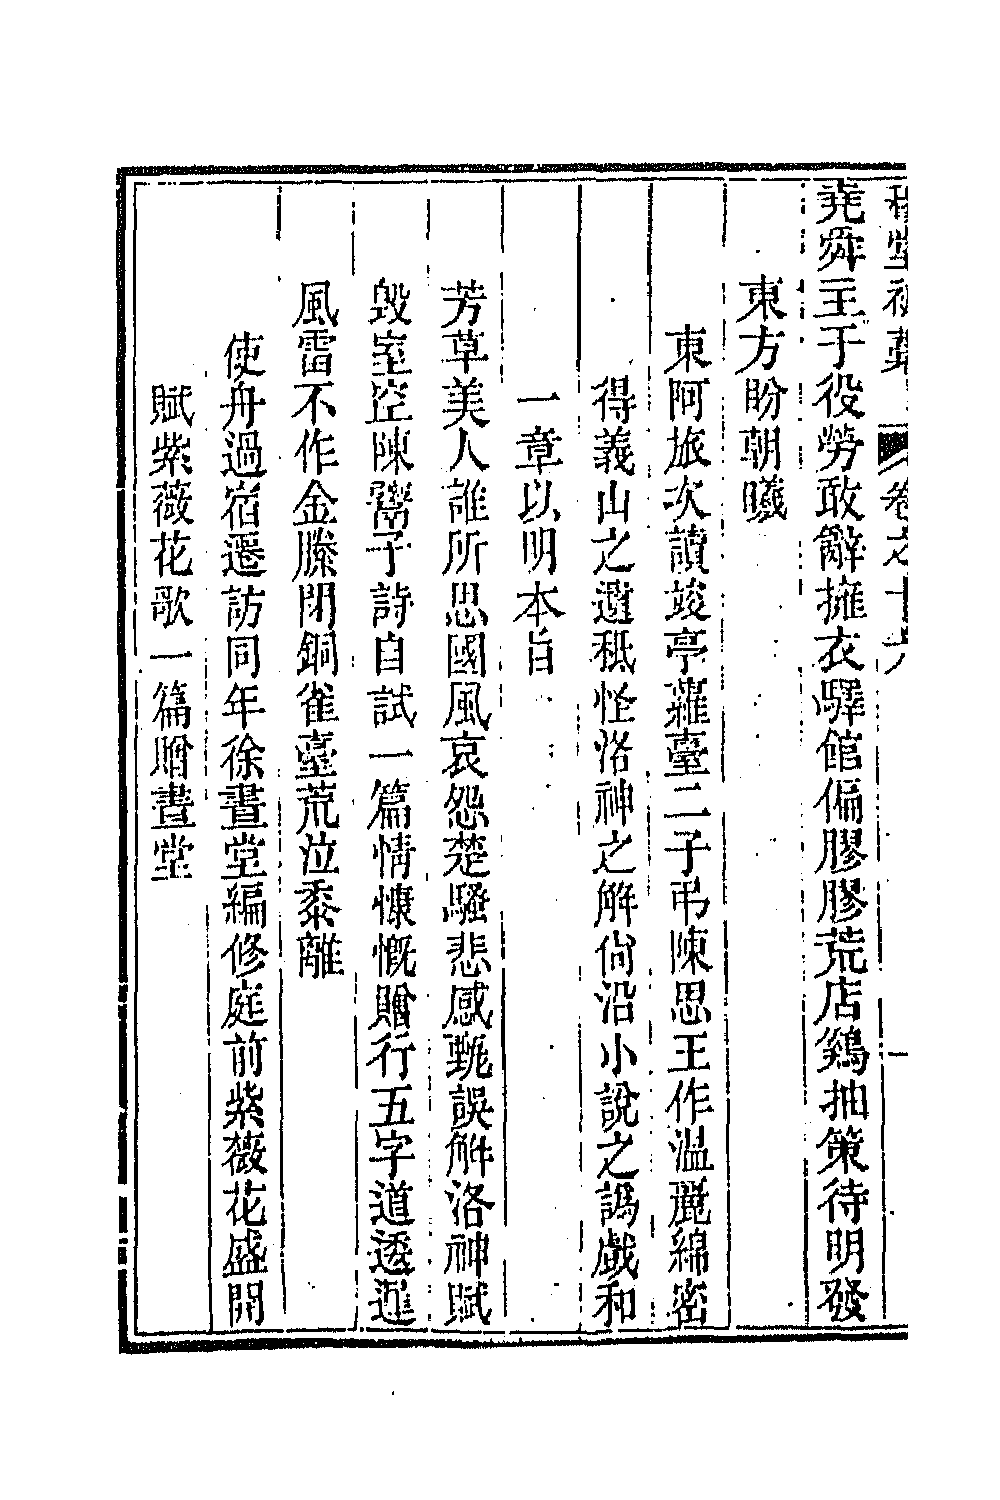 穆堂初藁 卷之十六 一
堯舜主于役勞敢辭擁衣驛館偏膠膠荒店鷄抽策待明發
東方盼朝曦
東阿旅次讀竣亭蘿臺二子弔陳思王作溫麗綿密
得義山之遺秪怪洛神之解尚沿小說之譌戲和
一章以明本旨
芳草美人誰所思國風哀怨楚騷悲感甄誤解洛神賦
毀室空陳鬻子詩自試一篇情慷慨贈行五字道逶遲
風雷不作金縢閉銅雀臺荒泣黍離
使舟過宿遷訪同年徐晝堂編修庭前紫薇花盛開
賦紫薇花歌一篇贈晝堂